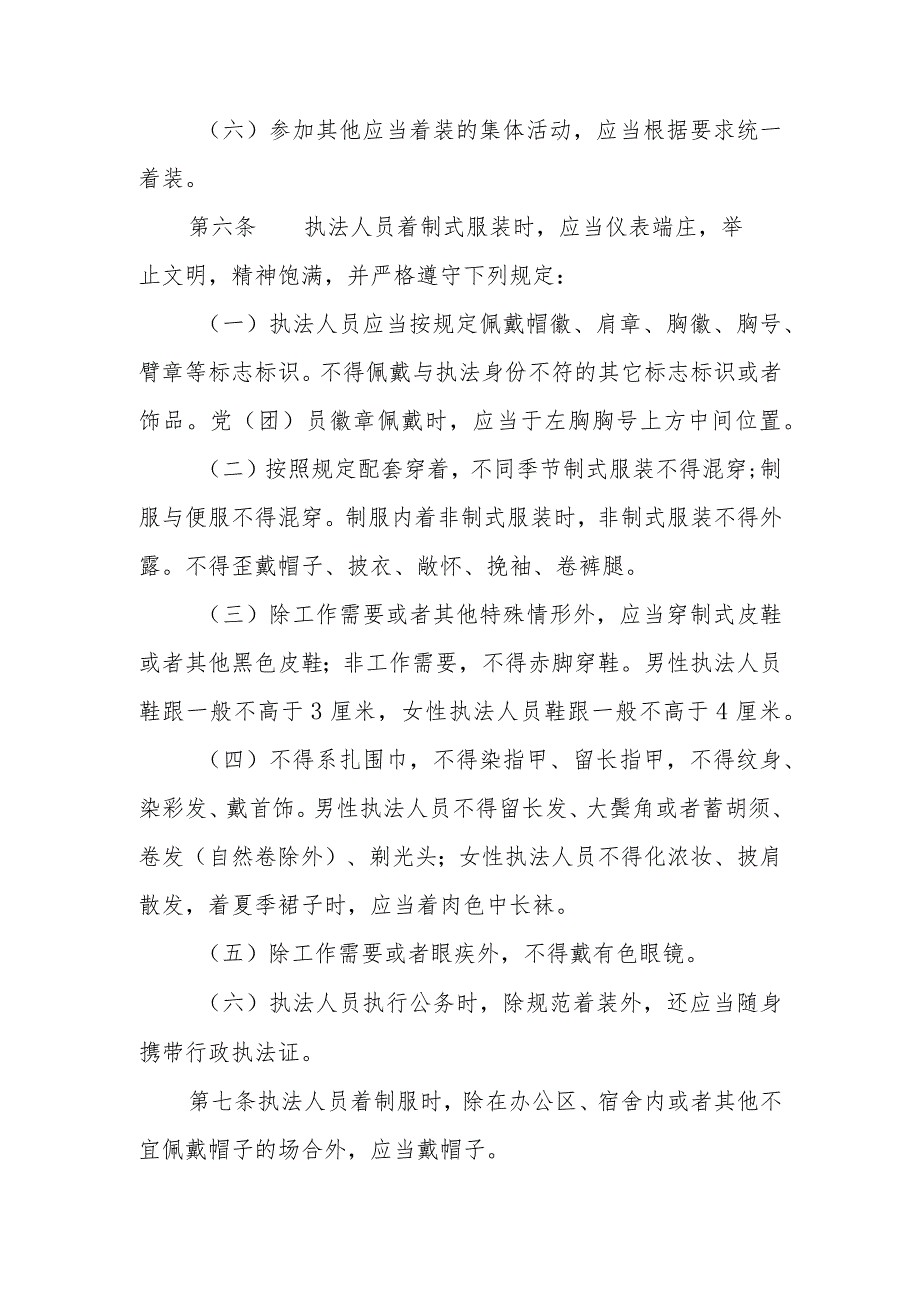 （六）参加其他应当着装的集体活动，应当根据要求统一
着装。
第六条　　执法人员着制式服装时，应当仪表端庄，举
止文明，精神饱满，并严格遵守下列规定：
（一）执法人员应当按规定佩戴帽徽、肩章、胸徽、胸号、
臂章等标志标识。不得佩戴与执法身份不符的其它标志标识或者
饰品。党（团）员徽章佩戴时，应当于左胸胸号上方中间位置。
（二）按照规定配套穿着，不同季节制式服装不得混穿;制
服与便服不得混穿。制服内着非制式服装时，非制式服装不得外
露。不得歪戴帽子、披衣、敞怀、挽袖、卷裤腿。
（三）除工作需要或者其他特殊情形外，应当穿制式皮鞋
或者其他黑色皮鞋；非工作需要，不得赤脚穿鞋。男性执法人员
鞋跟一般不高于3厘米，女性执法人员鞋跟一般不高于4厘米。
（四）不得系扎围巾，不得染指甲、留长指甲，不得纹身、
染彩发、戴首饰。男性执法人员不得留长发、大鬓角或者蓄胡须、
卷发（自然卷除外）、剃光头；女性执法人员不得化浓妆、披肩
散发，着夏季裙子时，应当着肉色中长袜。
（五）除工作需要或者眼疾外，不得戴有色眼镜。
（六）执法人员执行公务时，除规范着装外，还应当随身
携带行政执法证。
第七条执法人员着制服时，除在办公区、宿舍内或者其他不
宜佩戴帽子的场合外，应当戴帽子。